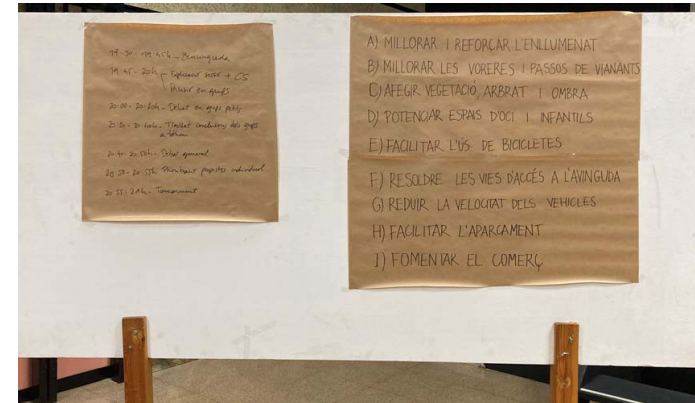 19:30 - 19:45h - Benvinguda
19:45 - 20h - Explicació sessió + CS
Divisió en grups
20:00 - 20:20h - Debat en grups petits
20:20 - 20:40h - Trasllat conclusions dels grups
a tothom
20:40 - 20:50h - Debat general
20:50 - 20:55h - Prioritzar propostes individual
20:55 - 21h - Tancament
A) MILLORAR I REFORÇAR L'ENLLUMENAT
B) MILLORAR LES VORERES I PASSOS DE VIANANTS
C) AFEGIR VEGETACIÓ, ARBRAT I OMBRA
D) POTENCIAR ESPAIS D'OCI I INFANTILS
E) FACILITAR L'ÚS DE BICICLETES
F) RESOLDRE LES VIES D'ACCÉS A L'AVINGUDA
G) REDUIR LA VELOCITAT DELS VEHICLES
H) FACILITAR L'APARCAMENT
I) FOMENTAR EL COMERÇ